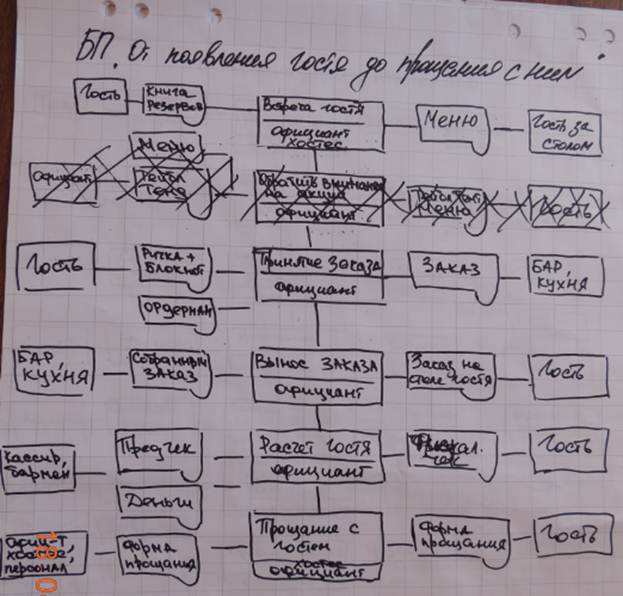 БП. От появления гостя до прощания с ним
Гость
Книга
резервов
Встреча гостя
официант
хостес
Меню
Гость за
столом
официант
Меню
Тейбл
Тент
Обратить внимание
на акции
официант
Тейбл тент
Меню
Гость
Гость
Ручка +
блокнот
ордерман
Принятие заказа
официант
Заказ
БАР,
кухня
БАР,
кухня
Собранный
заказ
Вынос заказа
официант
Заказ на
столе гостя
Гость
Кассир,
бармен
Предчек
Деньги
Расчет гостя
официант
Фискал.
чек
Гость
офиц-т,
хостес,
персонал
форма
прощания
Прощание с
гостем
хостес
официант
форма
прощания
Гость